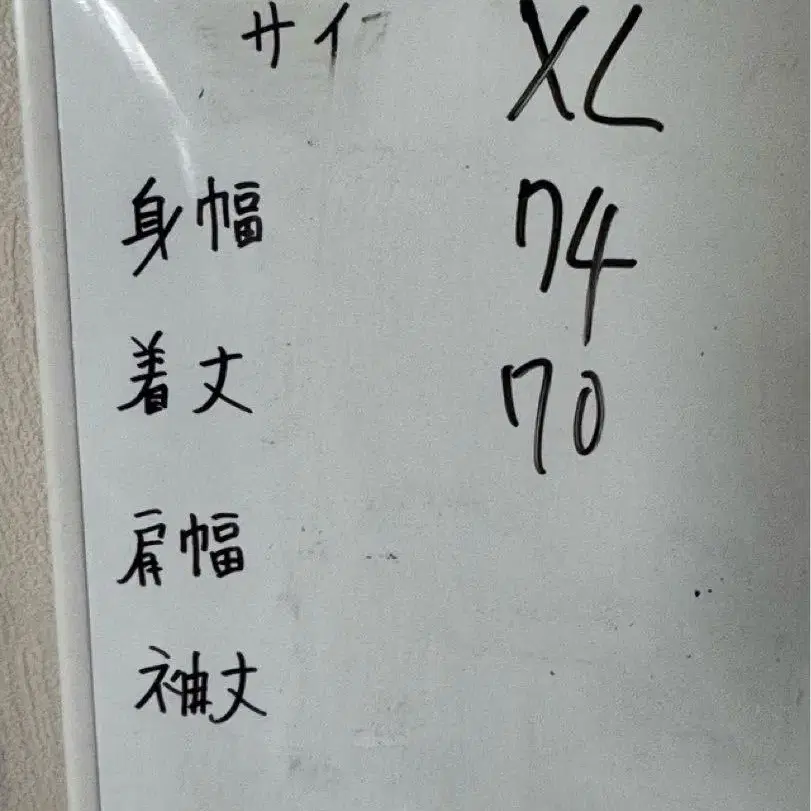 サイズ XL
身幅 74
着丈 70
肩幅
袖丈